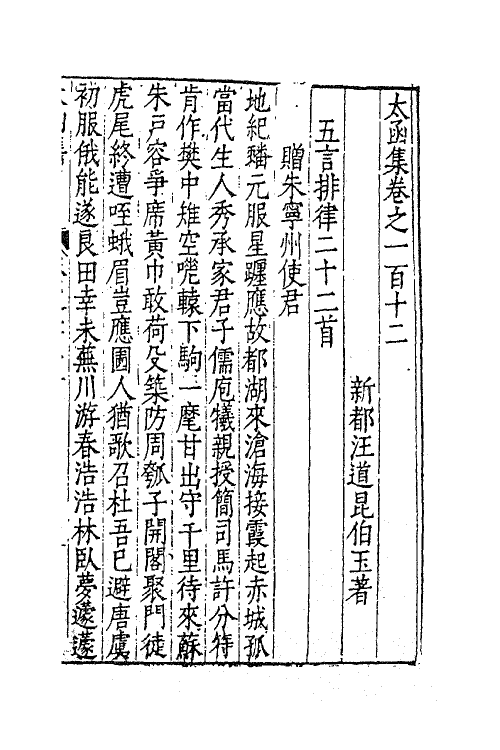 太函集卷之一百十二
新都汪道昆伯玉著
五言排律二十二首
贈朱寧州使君
地紀蟠元服星躔應故都湖來滄海接霞起赤城孤
當代生人秀承家君子儒庖犧親授簡司馬許分符
肯作樊中雉空嗟轅下駒一麾甘出守千里待來蘇
朱戶容爭席黃巾敢荷殳築防周瓠子開閣聚門徒
虎尾終遭咥蛾眉豈應圖人猶歌召杜吾已避唐虞
初服俄能遂良田幸未蕪川游春浩浩林臥夢蘧蘧